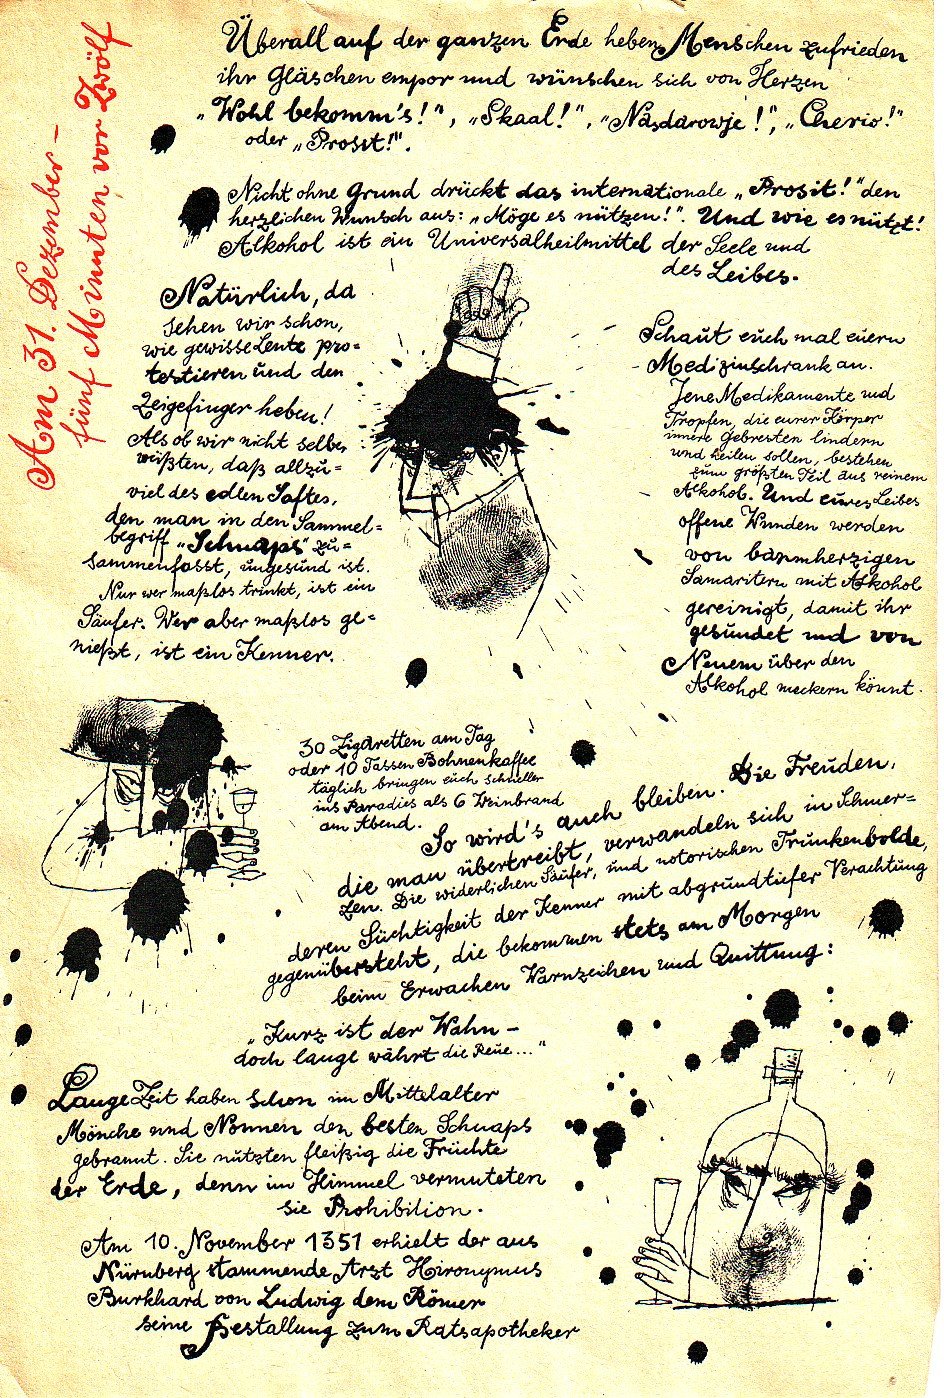 Am 31. Dezember –
fünf Minuten vor Zwölf
Überall auf der ganzen Erde heben Menschen zufrieden
ihr Gläschen empor und wünschen sich von Herzen
„Wohl bekomm's!“, „Skaal!“, „Nasdarowje!“, „Cherio!“
oder „Prosit!“.
Nicht ohne Grund drückt das internationale „Prosit!“ den
herzlichen Wunsch aus: „Möge es nützen!“. Und wie es nützt!
Alkohol ist ein Universalheilmittel der Seele und
des Leibes.
Natürlich, da
sehen wir schon,
wie gewisse Leute pro=
testieren und den
Zeigefinger heben!
Als ob wir nicht selber
wüßten, daß allzu=
viel des edlen Saftes,
den man in den Sammel=
begriff „Schnaps“ zu=
sammenfasst, ungesund ist.
Nur wer maßlos trinkt, ist ein
Säufer. Wer aber maßlos ge=
nießt, ist ein Kenner.
Schaut euch mal euern
Medizinschrank an.
Jene Medikamente und
Tropfen, die eurer Körper
innere Gebresten lindern
und heilen sollen, bestehen
zum größten Teil aus reinem
Alkohol. Und eures Leibes
offene Wunden werden
von barmherzigen
Samaritern mit Alkohol
gereinigt, damit ihr
gesundet und von
Neuem über den
Alkohol meckern könnt.
30 Zigaretten am Tag
oder 10 Tassen Bohnenkaffee
täglich bringen euch schneller
ins Paradies als 6 Weinbrand
am Abend.
So wird's auch bleiben. Die Freuden,
die man übertreibt, verwandeln sich in Schmer=
zen. Die widerlichen Säufer, und notorischen Trunkenbolde,
deren Süchtigkeit der Kenner mit abgrundtiefer Verachtung
gegenübersteht, die bekommen stets am Morgen
beim Erwachen Warnzeichen und Quittung:
„Kurz ist der Wahn –
doch lange währt die Reue..."
Lange Zeit haben schon im Mittelalter
Mönche und Nonnen den besten Schnaps
gebrannt. Sie nützten fleißig die Früchte
der Erde, denn im Himmel vermuteten
sie Prohibition.
Am 10. November 1351 erhielt der aus
Nürnberg stammende Arzt Hironymus
Burkhard von Ludwig dem Römer
seine Bestallung zum Ratsapotheker